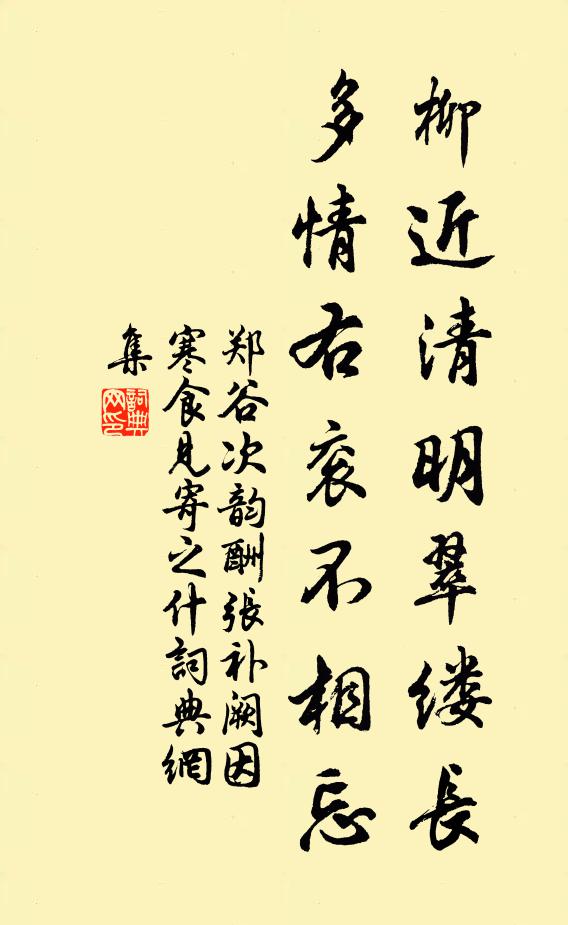 柳近清明翠缕長
多情右衮不相忘
郑谷次韵酬張补阙因
寒食見寄之什詞典網
集
詞典网印